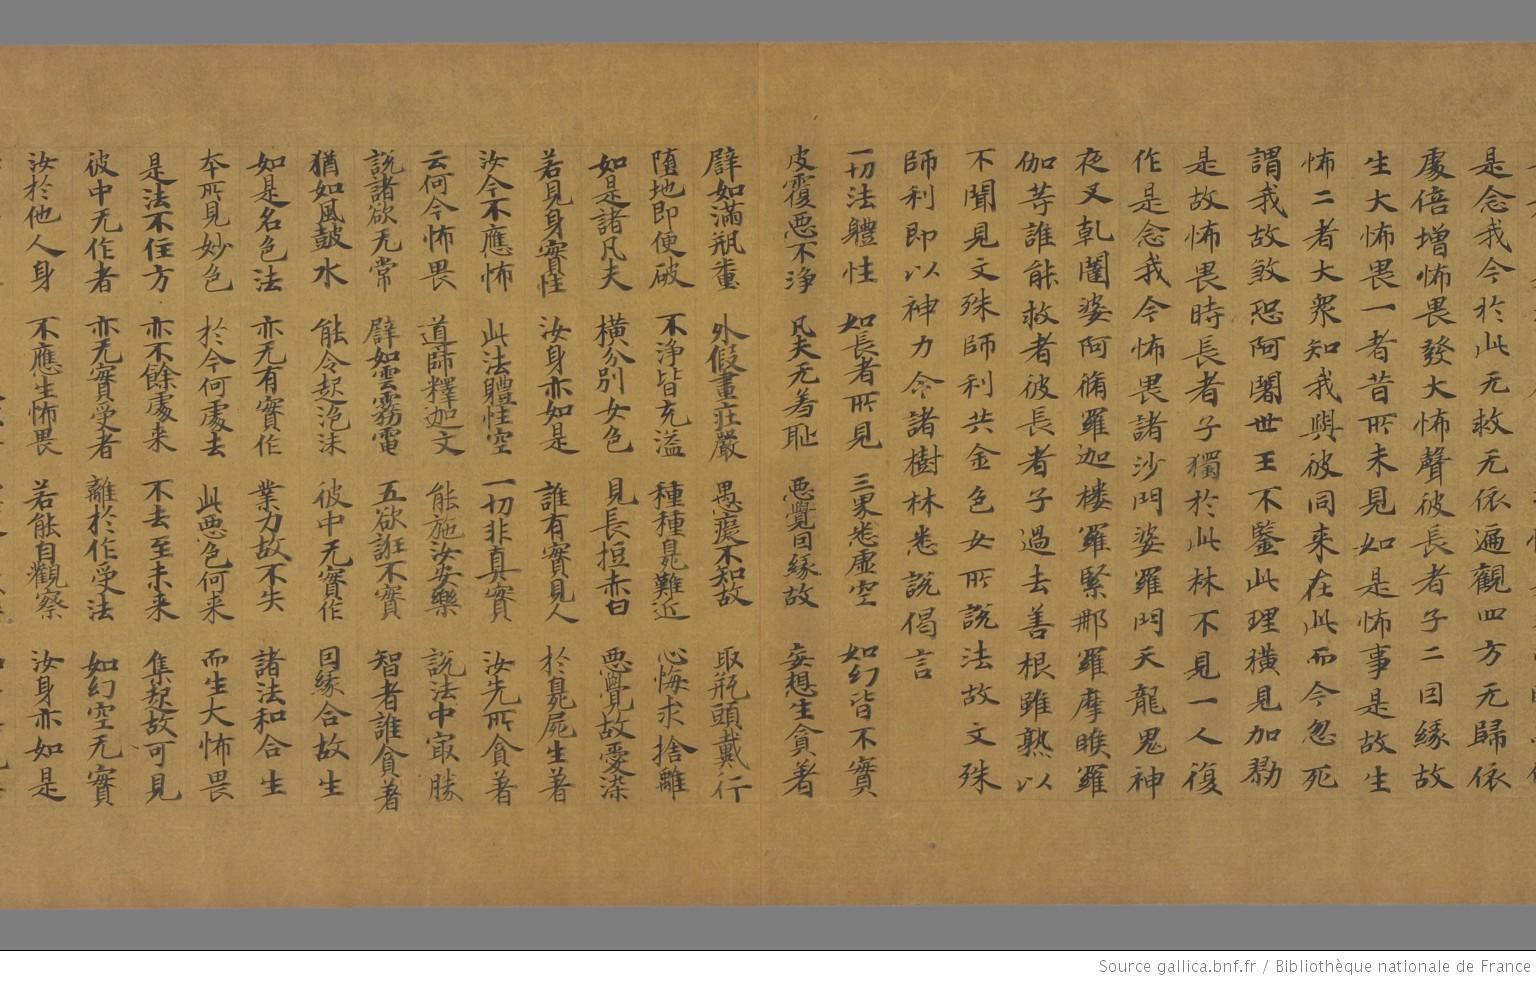 是念我今於此无救无依遍觀四方无歸依
處倍增怖畏發大怖聲彼長者子二因緣故
生大怖畏一者昔所未見如是怖事是故生
怖二者大衆知我與彼同来在此而今忽死
謂我故煞恐阿闍世王不鑒此理獷見加勠
是故怖畏時長者子獨於此林不見一人復
作是念我今怖畏諸沙門婆羅門天龍鬼神
夜叉乹闥婆阿脩羅迦楼羅緊那羅摩睺羅
伽等誰能救者彼長者子過去善根雖熟以
不聞見文殊師利共金色女所說法故文殊
師利即以神力令諸樹林悉說偈言
一切法體性 如長者所見 三界悉虛空 如幻皆不實
皮覆惡不淨 凡夫无羞恥 惡覺因緣故 妄想生貪著
辟如滿瓶糞 外假畫莊嚴 愚癡不知故 取瓶頭戴行
堕地即便破 不淨皆充溢 種種臭難近 心悔求捨離
如是諸凡夫 橫分別女色 見長短赤白 惡覺故憂深
若見身實性 汝身亦如是 誰有實見人 於臭屍生著
汝今不應怖 此法體性空 一切非真實 汝先所貪著
云何今怖畏 道師釋迦文 能施汝安樂 說法中冣勝
說諸欲无常 辟如雲霧電 五欲誑不實 智者誰貪著
猶如風皷水 能令起泡沫 彼中无實作 因緣合故生
如是名色法 亦无有實作 業力故不失 諸法和合生
本所見妙色 於今何處去 此惡色何来 而生大怖畏
是法不住方 亦不餘處来 不去至未来 集起故可見
彼中无作者 亦无實受者 離於作受法 如幻空无實
汝於他人身 不應生怖畏 若能自觀察 汝身亦如是
Source gallica.bnf.fr / Bibliothèque nationale de France